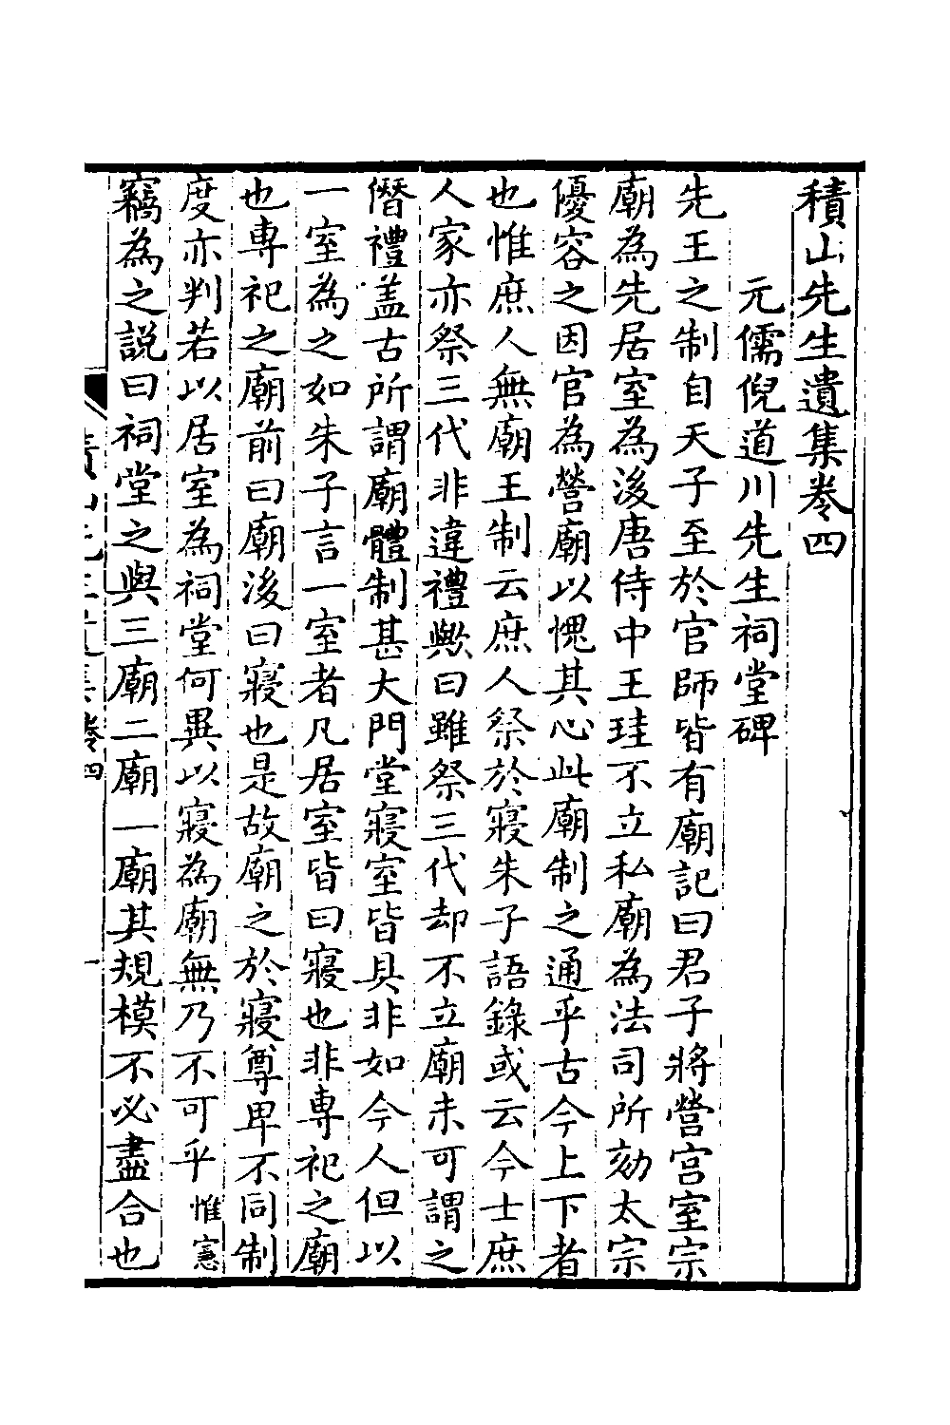 積山先生遺集卷四
元儒倪道川先生祠堂碑
先王之制自天子至於官師皆有廟記曰君子將營宮室宗
廟為先居室為後唐侍中王珪不立私廟為法司所劾太宗
優容之因官為營廟以愧其心此廟制之通乎古今上下者
也惟庶人無廟王制云庶人祭於寢朱子語錄或云今士庶
人家亦祭三代非違禮歟曰雖祭三代却不立廟未可謂之
僭禮盖古所謂廟體制甚大門堂寢室皆具非如今人但以
一室為之如朱子言一室者凡居室皆曰寢也非專祀之廟
也專祀之廟前曰廟後曰寢也是故廟之於寢尊卑不同制
度亦判若以居室為祠堂何異以寢為廟無乃不可乎惟憲
竊為之説曰祠堂之與三廟二廟一廟其規模不必盡合也
積山先生遺集卷四
一